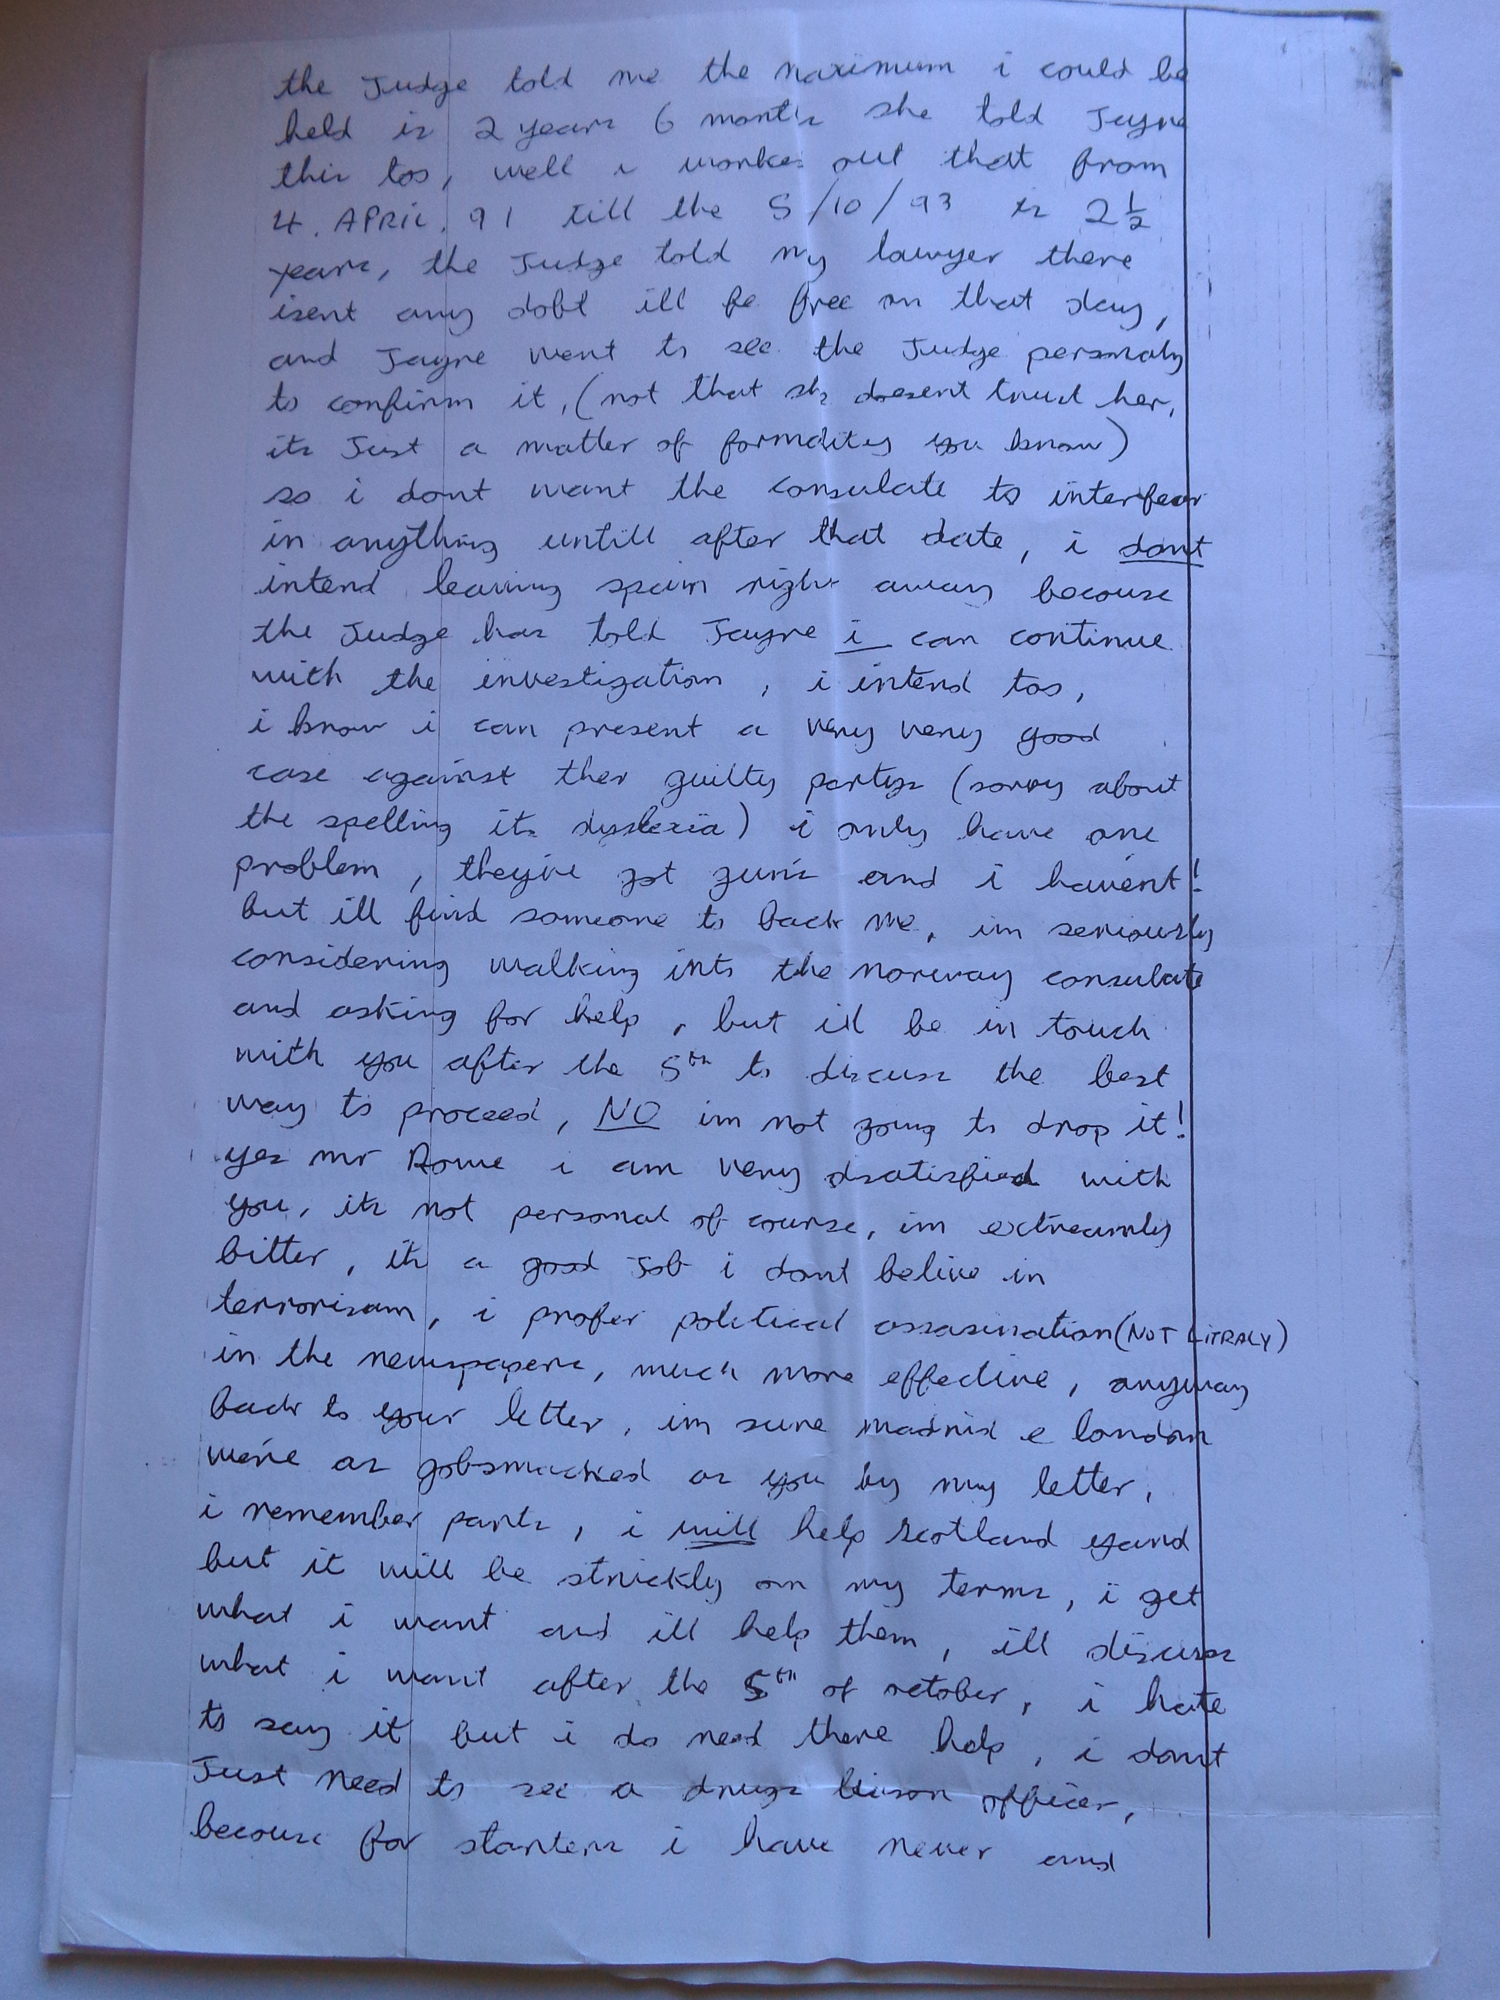 the Judge told me the maximum i could be
held is 2 years 6 months she told Jayne
this too, well i worked out that from
4. APRIL. 91 till the 5/10/93 is 2½
years, the Judge told my lawyer there
isent any dobt ill be free on that day,
and Jayne went to see the Judge personaly
to confirm it, (not that she doesent trust her,
its Just a matter of formality you know)
so i dont want the consulate to interfear
in anything untill after that date, i dont
intend leaving spain right away becouse
the Judge has told Jayne i can continue
with the investigation, i intend too,
i know i can present a very very good
case against ther guilty partys (sorry about
the spelling its dyslexia) i only have one
problem, they've got guns and i haven't!
but ill find someone to back me, im seriously
considering walking into the norway consulate
and asking for help, but ill be in touch
with you after the 5th to discuss the best
way to proceed, NO im not going to drop it!
yes mr Rowe i am very dsatisfied with
you, its not personal of course, im extreamly
bitter, its a good Job i dont belive in
terrorisam, i prefer political assasination (NOT LITRALY)
in the newspapers, much more effective, anyway
back to your letter, im sure madrid e london
were as gobsmacked as you by my letter,
i remember parts, i will help scotland yard
but it will be strickly on my terms, i get
what i want and ill help them, ill discuss
what i want after the 5th of october, i hate
to say it but i do need there help, i dont
Just need to see a drugs liason officer,
becouse for starters i have never and